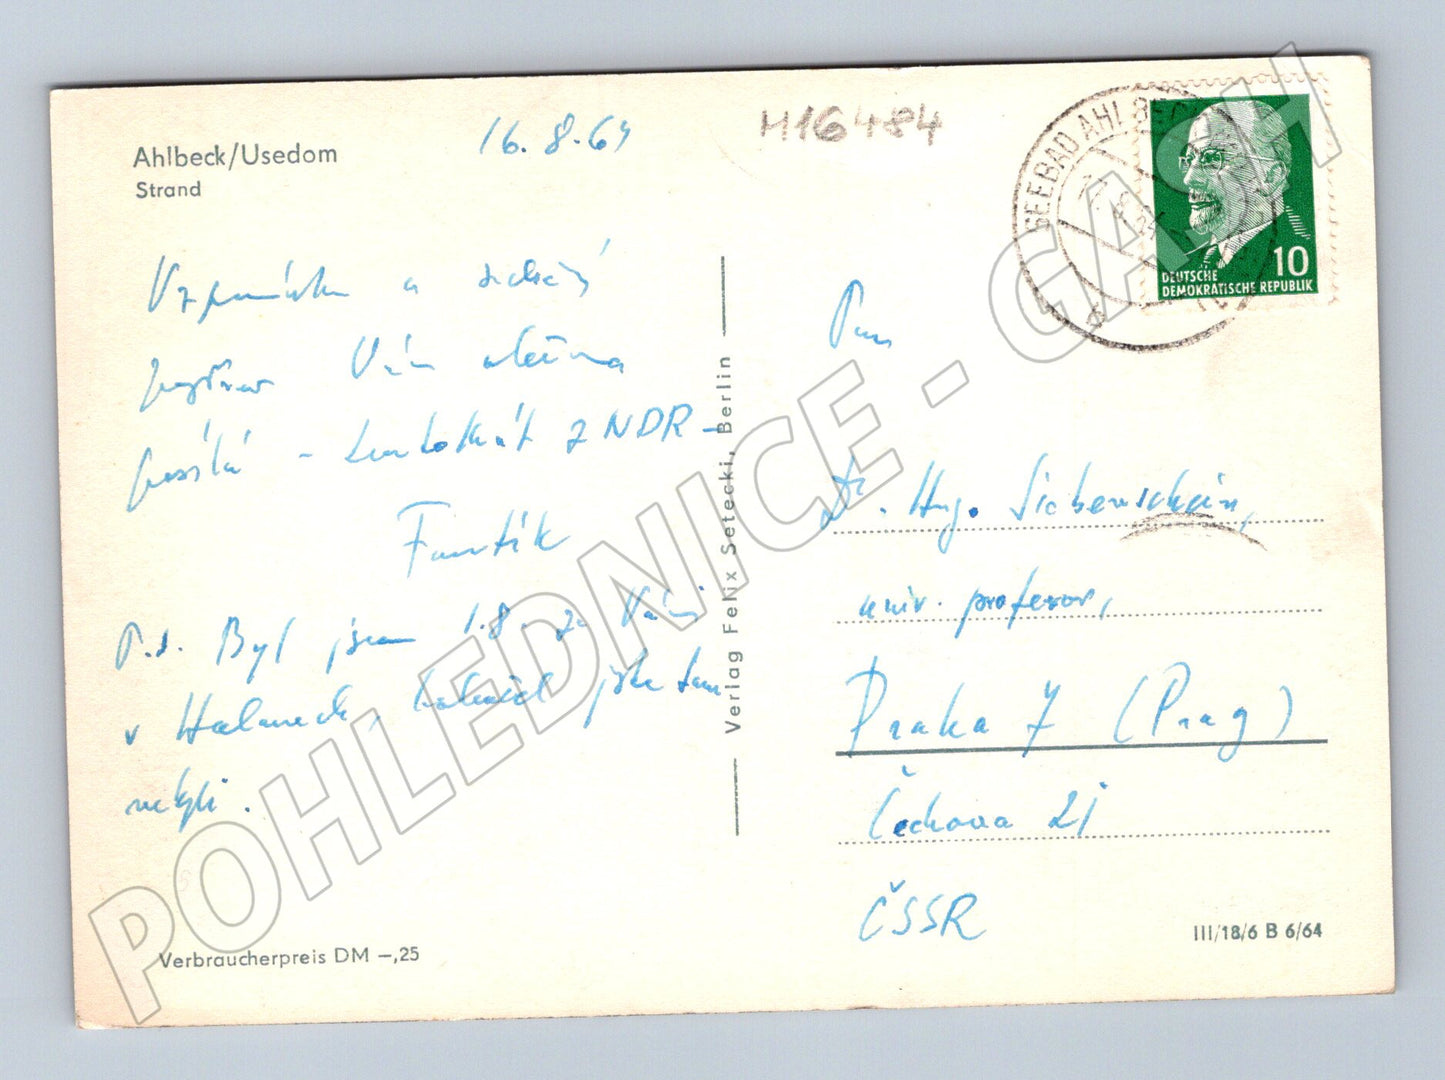 Ahlbeck/Usedom
Strand
16.8.64
M16484
SEEBAD AHLBECK
17.8.64
10
DEUTSCHE
DEMOKRATISCHE REPUBLIK
Vzpomínku a
pozdrav Vám
posílá - tentokrát z NDR -
Frantík
P.s. Byl jsem 1.8. za Vámi
v jste tam
nebyli.
Verbraucherpreis DM –,25
Verlag Felix Setecki, Berlin
Pan
Dr. Hugo Siebenschein,
univ. profesor,
Praha 7 (Prag)
Čechova
ČSSR
III/18/6 B 6/64
POHLEDNICE - GASH